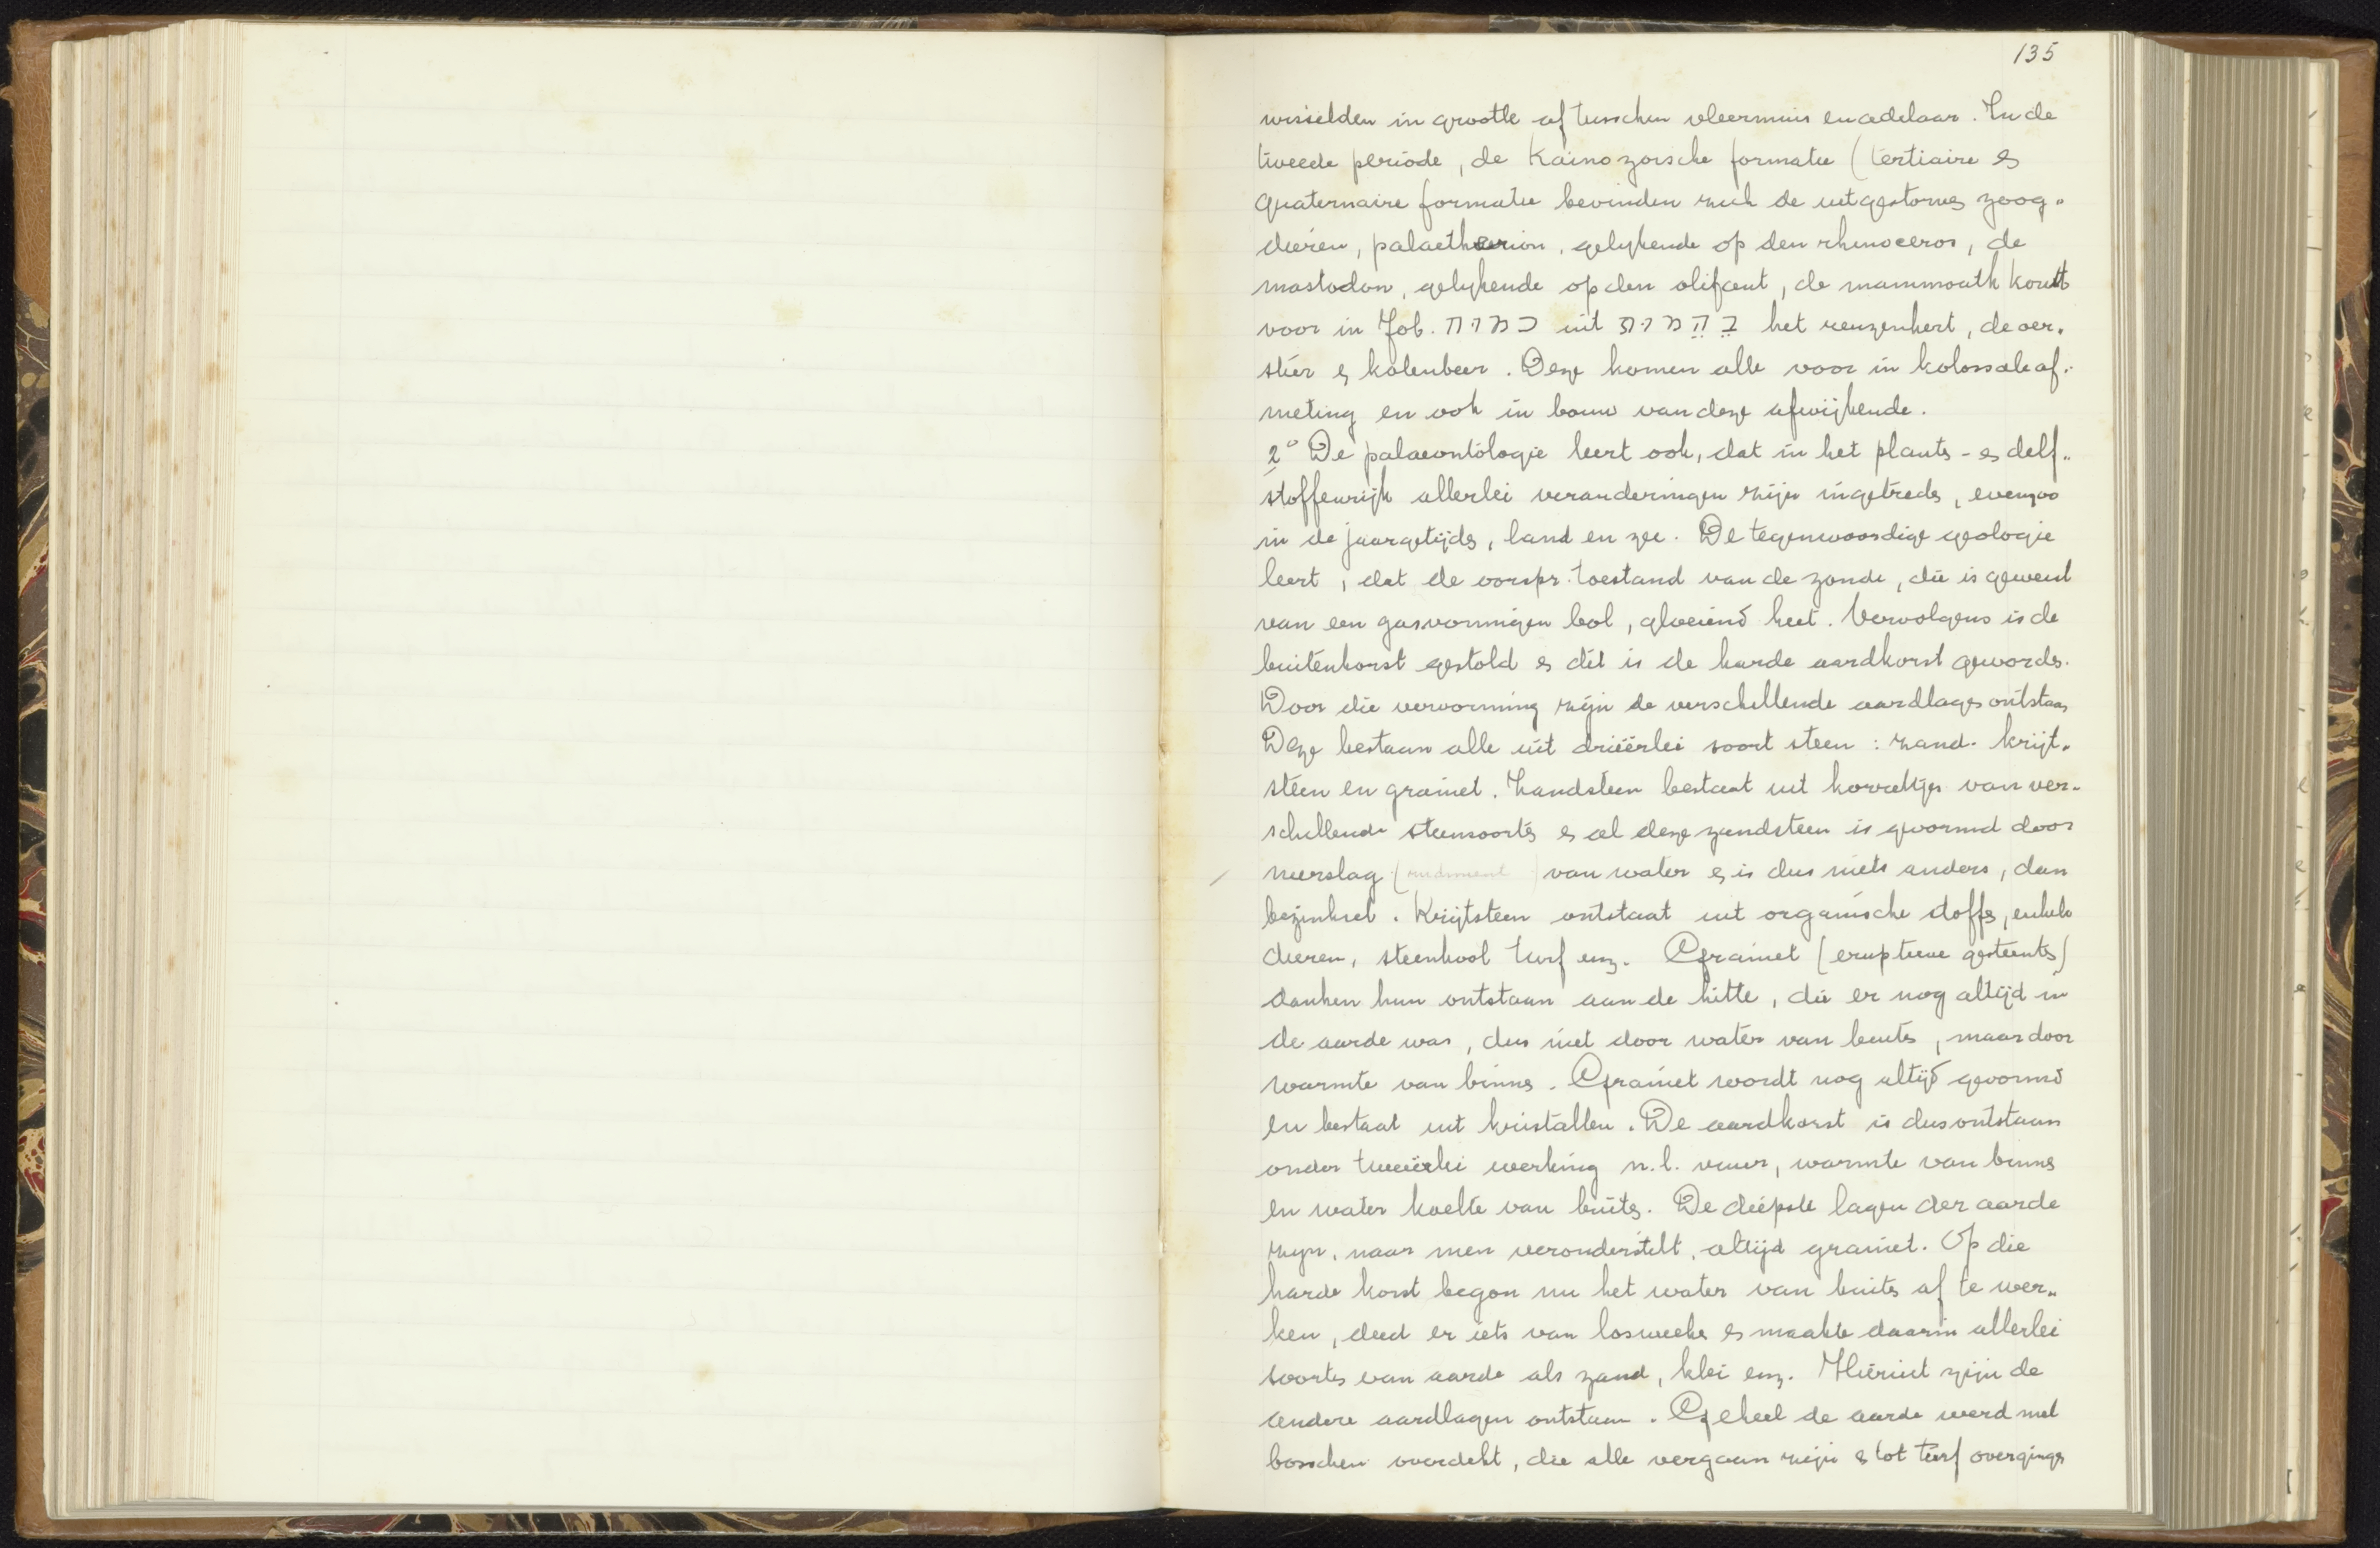 135
wisselden in grootte af tusschen vleermuis en adelaar. In de
tweede periode, de Kainozoische formatie (tertiaire &
quaternaire formatie bevinden zich de uitgestorven zoog„
dieren, palaetherion, gelykende op den rhinoceros, de
mastodon, gelykende op den olifant, de mammouth komt
voor in Job. במות uit בהמות het reuzenhert, de oer„
stier & holenbeer. Deze komen alle voor in kolossale af„
meting en ook in bouw van deze afwijkende.
2° De palaeontologie leert ook, dat in het planten- en delf„
stoffenrijk allerlei veranderingen zijn ingetreden, evenzoo
in de jaargetijden, land en zee. De tegenwoordige geologie
leert, dat de oorspr. toestand van de zonde, die is geweest
van een gasvormigen bol, gloeiend heet. Vervolgens is de
buitenkorst gestold en dit is de harde aardkorst geworden.
Door die vervorming zijn de verschillende aardlagen ontstaan
Deze bestaan alle uit drieërlei soort steen: zand- krijt„
steen en graniet. Zandsteen bestaat uit korreltjes van ver„
schillende steensoorten en al deze zandsteen is gevormd door
neerslag ( ) van water en is dus niets anders, dan
bezinksel. Krijtsteen ontstaat uit organische stoffen, enkele
dieren, steenkool turf enz. Graniet (eruptieve gesteenten)
danken hun ontstaan aan de hitte, die er nog altijd in
de aarde was, dus niet door water van buiten, maar door
warmte van binnen. Graniet wordt nog altijd gevormd
en bestaat uit kristallen. De aardkorst is dus ontstaan
onder tweeërlei werking n.l. vuur, warmte van binnen
en water koelte van buiten. De diepste lagen der aarde
zijn, naar men veronderstelt, altijd graniet. Op die
harde korst begon nu het water van buiten af te wer„
ken, deed er iets van losweeken en maakte daarin allerlei
soorten van aarde als zand, klei enz. Hieruit zijn de
andere aardlagen ontstaan. Geheel de aarde werd met
bosschen overdekt, die alle vergaan zijn en tot turf overgingen